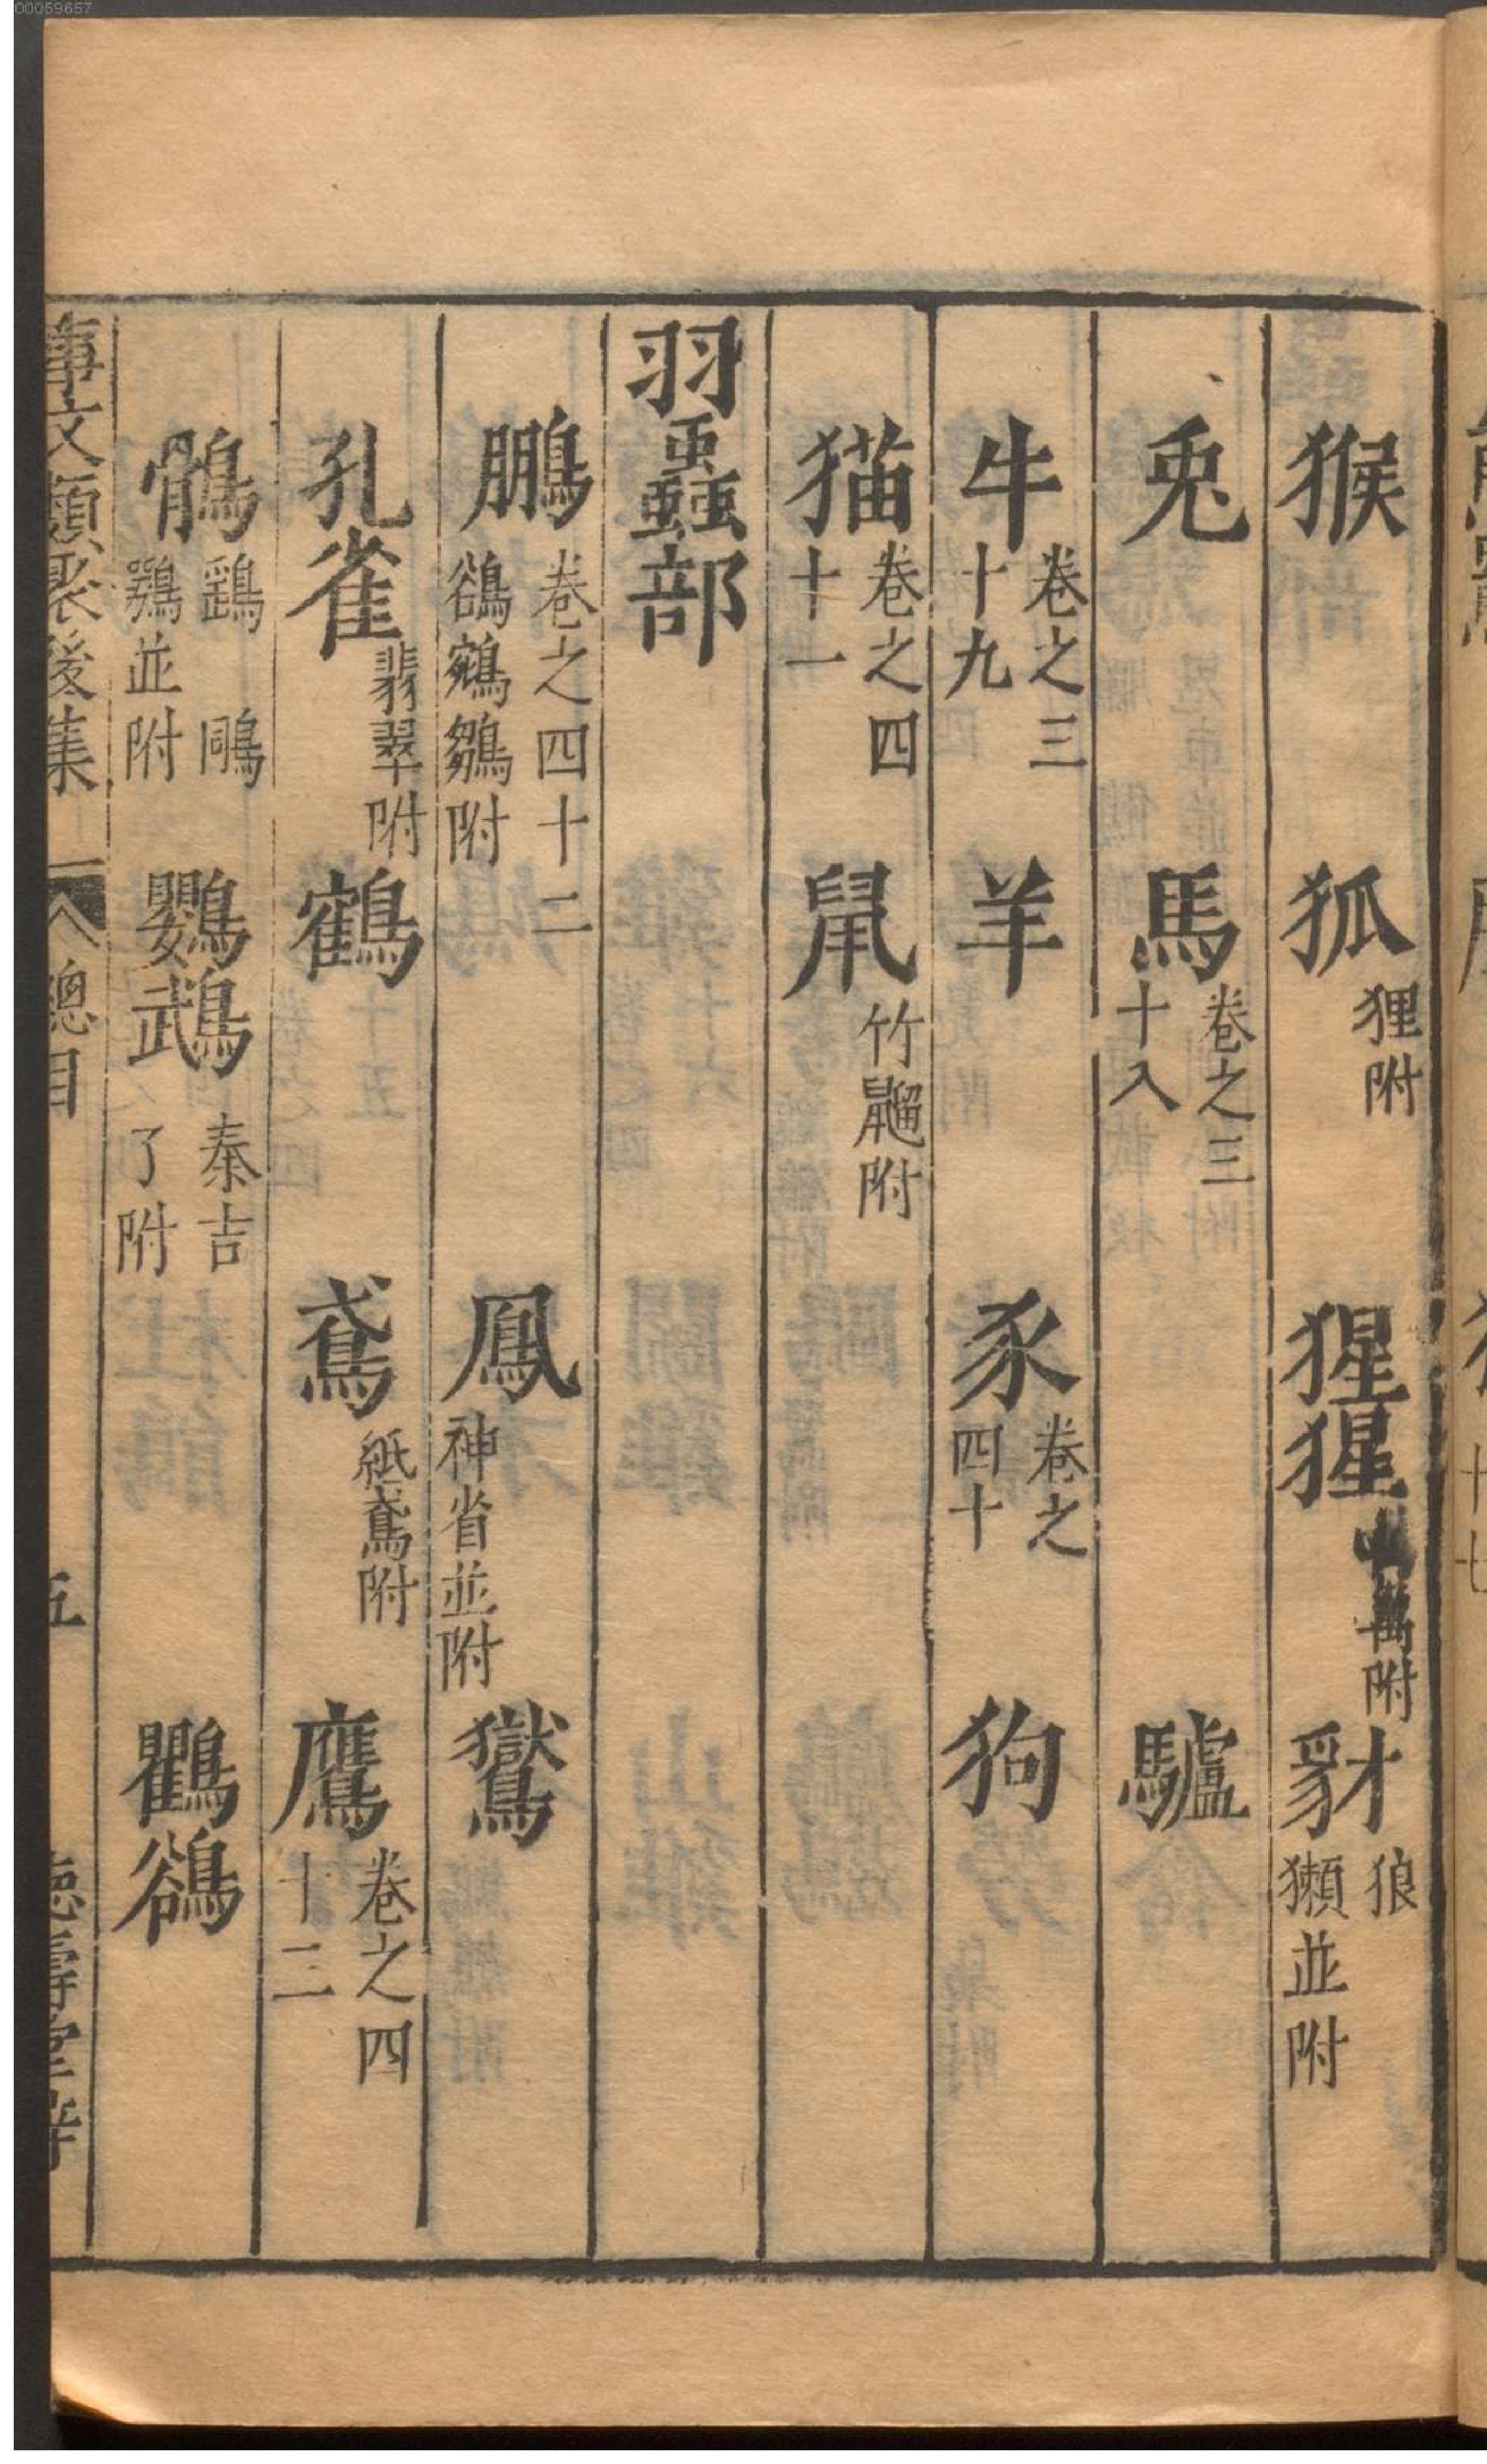 00059657
猴 狐 狸附 猩猩 附 豺 狼獺並附
兎 馬 卷之三十八 驢
牛 卷之三十九 羊 豕 卷之四十 狗
猫 卷之四十一 鼠 竹䶉附
羽蟲部
鵬 卷之四十二 鵒鵷鶵附 鳳 神省並附 鸑
孔雀 翡翠附 鶴 鳶 紙鳶附 鷹 卷之四十三
鶻 鷂鵰鶚並附 鸚鵡 秦吉了附 鸜鵒
事文類聚後集 總目 五 德壽堂梓